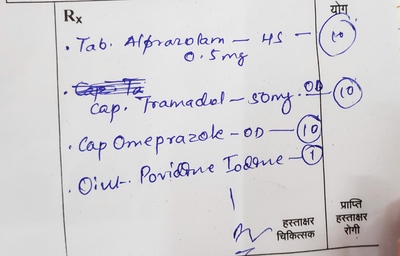 Rx
योग
. Tab. Alprazolam – HS – 10
0.5 mg
. Cap. Ta
Cap. Tramadol – 50mg. OD – 10
. Cap Omeprazole – OD – 10
. Oint. Povidone Iodone – 1
हस्ताक्षर
चिकित्सक
प्राप्ति
हस्ताक्षर
रोगी